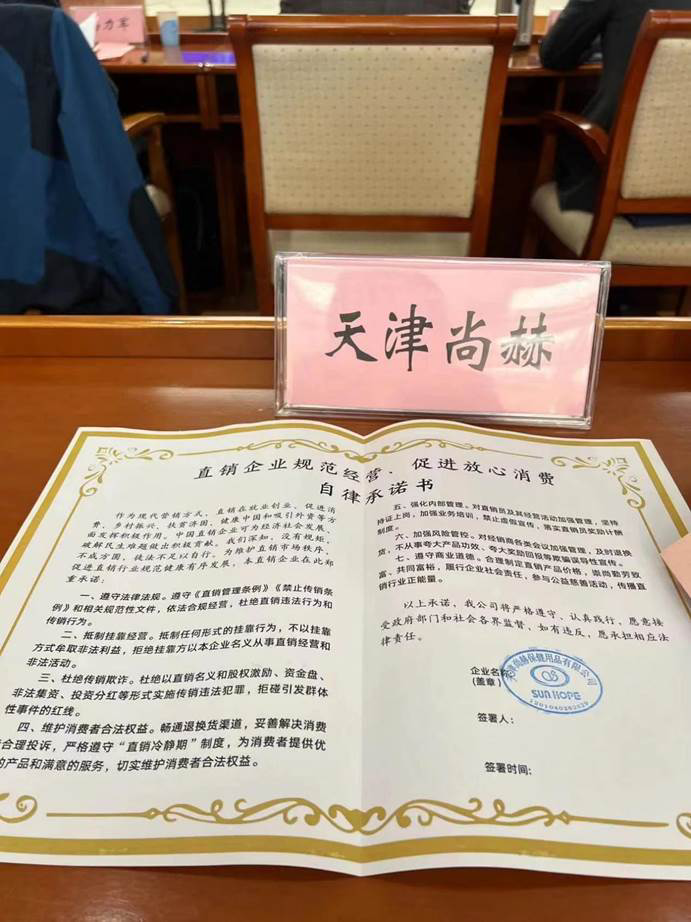 力军
天津尚赫
直销企业规范经营、促进放心消费
自律承诺书
作为现代营销方式，直销在就业创业、促进消
费、乡村振兴、扶贫济困、健康中国和吸引外资等方
面发挥积极作用。中国直销企业可为经济社会发展、
破解民生难题做出积极贡献。我们深知，没有规矩，
不成方圆，找证不足以自行。为维护直销市场秩序，
促进直销行业规范健康有序发展，本直销企业在此郑
重承诺：
一、遵守法律法规。遵守《直销管理条例》《禁止传销条
例》和相关规范性文件，依法合规经营，杜绝直销违法行为和
传销行为。
二、抵制挂靠经营。抵制任何形式的挂靠行为，不以挂靠
方式牟取非法利益，拒绝挂靠方以本企业名义从事直销经营和
非法活动。
三、杜绝传销欺诈。杜绝以直销名义和股权激励、资金盘、
非法集资、投资分红等形式实施传销违法犯罪，拒碰引发群体
性事件的红线。
四、维护消费者合法权益。畅通退换货渠道，妥善解决消费
合理投诉，严格遵守“直销冷静期”制度，为消费者提供优
的产品和满意的服务，切实维护消费者合法权益。
五、强化内部管理。对直销员及其经营活动加强管理，坚持
持证上岗，加强业务培训，禁止虚假宣传，落实直销员奖励计酬
制度。
六、加强风险管控。对经销商各类会议加强管理，及时退换
货，不从事夸大产品功效、夸大奖励回报等欺骗误导性宣传。
七、遵守商业道德。合理制定直销产品价格，崇尚勤劳致
富、共同富裕，履行企业社会责任，参与公益慈善活动，传播直
销行业正能量。
以上承诺，我公司将严格遵守、认真践行，愿意接
受政府部门和社会各界监督，如有违反，愿承担相应法
律责任。
企业名称
（盖章）
天津尚赫保健用品有限公司
SUN HOPE
签署人：
签署时间：